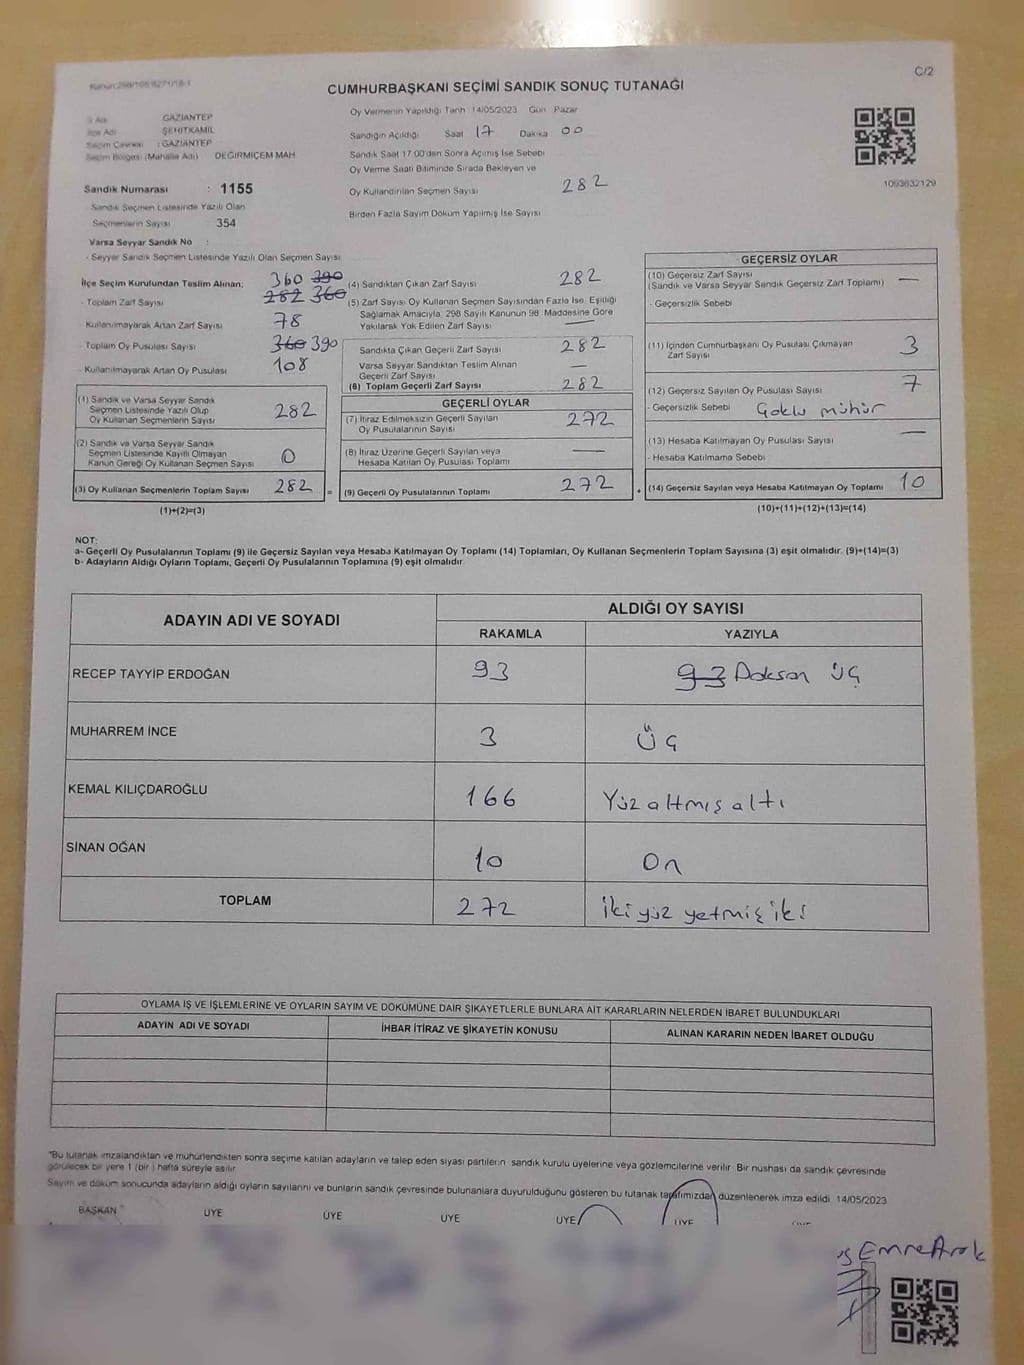 C/2
CUMHURBAŞKANI SEÇİMİ SANDIK SONUÇ TUTANAĞI
İl Adı GAZİANTEP
İlçe Adı ŞEHİTKAMİL
Seçim Çevresi : GAZİANTEP
Seçim Bölgesi (Mahalle Adı) DEĞİRMİÇEM MAH
Sandık Numarası : 1155
Sandık Seçmen Listesinde Yazılı Olan
Seçmenlerin Sayısı 354
Varsa Seyyar Sandık No :
- Seyyar Sandık Seçmen Listesinde Yazılı Olan Seçmen Sayısı
Oy Vermenin Yapıldığı Tarih 14/05/2023 Gün Pazar
Sandığın Açıldığı Saat 17 Dakika 00
Sandık Saat 17:00'den Sonra Açılmış İse Sebebi
Oy Verme Saati Bitiminde Sırada Bekleyen ve
Oy Kullandırılan Seçmen Sayısı 282
Birden Fazla Sayım Döküm Yapılmış İse Sayısı
1093632129
İlçe Seçim Kurulundan Teslim Alınan; 360 390
- Toplam Zarf Sayısı 282 360
Kullanılmayarak Artan Zarf Sayısı 78
- Toplam Oy Pusulası Sayısı 360 390
- Kullanılmayarak Artan Oy Pusulası 108
(1) Sandık ve Varsa Seyyar Sandık
Seçmen Listesinde Yazılı Olup
Oy Kullanan Seçmenlerin Sayısı 282
(2) Sandık ve Varsa Seyyar Sandık
Seçmen Listesinde Kayıtlı Olmayan
Kanun Gereği Oy Kullanan Seçmen Sayısı 0
(3) Oy Kullanan Seçmenlerin Toplam Sayısı 282 =
(1)+(2)=(3)
(4) Sandıktan Çıkan Zarf Sayısı 282
(5) Zarf Sayısı Oy Kullanan Seçmen Sayısından Fazla İse, Eşitliği
Sağlamak Amacıyla, 298 Sayılı Kanunun 98. Maddesine Göre
Yakılarak Yok Edilen Zarf Sayısı —
Sandıkta Çıkan Geçerli Zarf Sayısı 282
Varsa Seyyar Sandıktan Teslim Alınan
Geçerli Zarf Sayısı —
(6) Toplam Geçerli Zarf Sayısı 282
GEÇERLİ OYLAR
(7) İtiraz Edilmeksizin Geçerli Sayılan
Oy Pusulalarının Sayısı 272
(8) İtiraz Üzerine Geçerli Sayılan veya
Hesaba Katılan Oy Pusulası Toplamı —
(9) Geçerli Oy Pusulalarının Toplamı 272 +
GEÇERSİZ OYLAR
(10) Geçersiz Zarf Sayısı
(Sandık ve Varsa Seyyar Sandık Geçersiz Zarf Toplamı) —
- Geçersizlik Sebebi
(11) İçinden Cumhurbaşkanı Oy Pusulası Çıkmayan
Zarf Sayısı 3
(12) Geçersiz Sayılan Oy Pusulası Sayısı 7
- Geçersizlik Sebebi Çoklu mühür
(13) Hesaba Katılmayan Oy Pusulası Sayısı —
- Hesaba Katılmama Sebebi
(14) Geçersiz Sayılan veya Hesaba Katılmayan Oy Toplamı 10
(10)+(11)+(12)+(13)=(14)
NOT:
a- Geçerli Oy Pusulalarının Toplamı (9) ile Geçersiz Sayılan veya Hesaba Katılmayan Oy Toplamı (14) Toplamları, Oy Kullanan Seçmenlerin Toplam Sayısına (3) eşit olmalıdır. (9)+(14)=(3)
b- Adayların Aldığı Oyların Toplamı, Geçerli Oy Pusulalarının Toplamına (9) eşit olmalıdır.
ADAYIN ADI VE SOYADI ALDIĞI OY SAYISI
RAKAMLA YAZIYLA
RECEP TAYYİP ERDOĞAN 93 93 Doksan üç
MUHARREM İNCE 3 Üç
KEMAL KILIÇDAROĞLU 166 Yüz altmış altı
SİNAN OĞAN 10 On
TOPLAM 272 iki yüz yetmiş iki
OYLAMA İŞ VE İŞLEMLERİNE VE OYLARIN SAYIM VE DÖKÜMÜNE DAİR ŞİKAYETLERLE BUNLARA AİT KARARLARIN NELERDEN İBARET BULUNDUKLARI
ADAYIN ADI VE SOYADI İHBAR İTİRAZ VE ŞİKAYETİN KONUSU ALINAN KARARIN NEDEN İBARET OLDUĞU
"Bu tutanak imzalandıktan ve mühürlendikten sonra seçime katılan adayların ve talep eden siyasi partilerin sandık kurulu üyelerine veya gözlemcilerine verilir. Bir nüshası da sandık çevresinde
görülecek bir yere 1 (bir) hafta süreyle asılır.
Sayım ve döküm sonucunda adayların aldığı oyların sayılarını ve bunların sandık çevresinde bulunanlara duyurulduğunu gösteren bu tutanak tarafımızdan düzenlenerek imza edildi 14/05/2023
BAŞKAN ÜYE ÜYE ÜYE ÜYE ÜYE
Emre